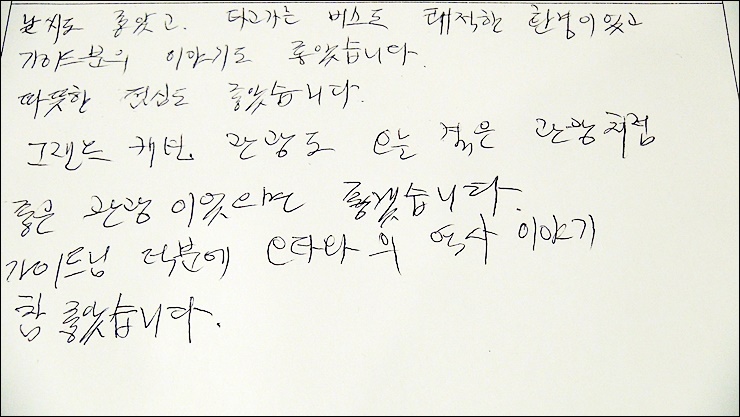 날씨도 좋았고. 타고가는 버스도 쾌적한 환경이었고
가이드분의 이야기도 좋았습니다.
따뜻한 점심도 좋았습니다.
그랜드 캐년. 관광도 오늘 같은 관광처럼
좋은 관광이었으면 좋겠습니다.
가이드님 덕분에 오타와의 역사 이야기
참 좋았습니다.